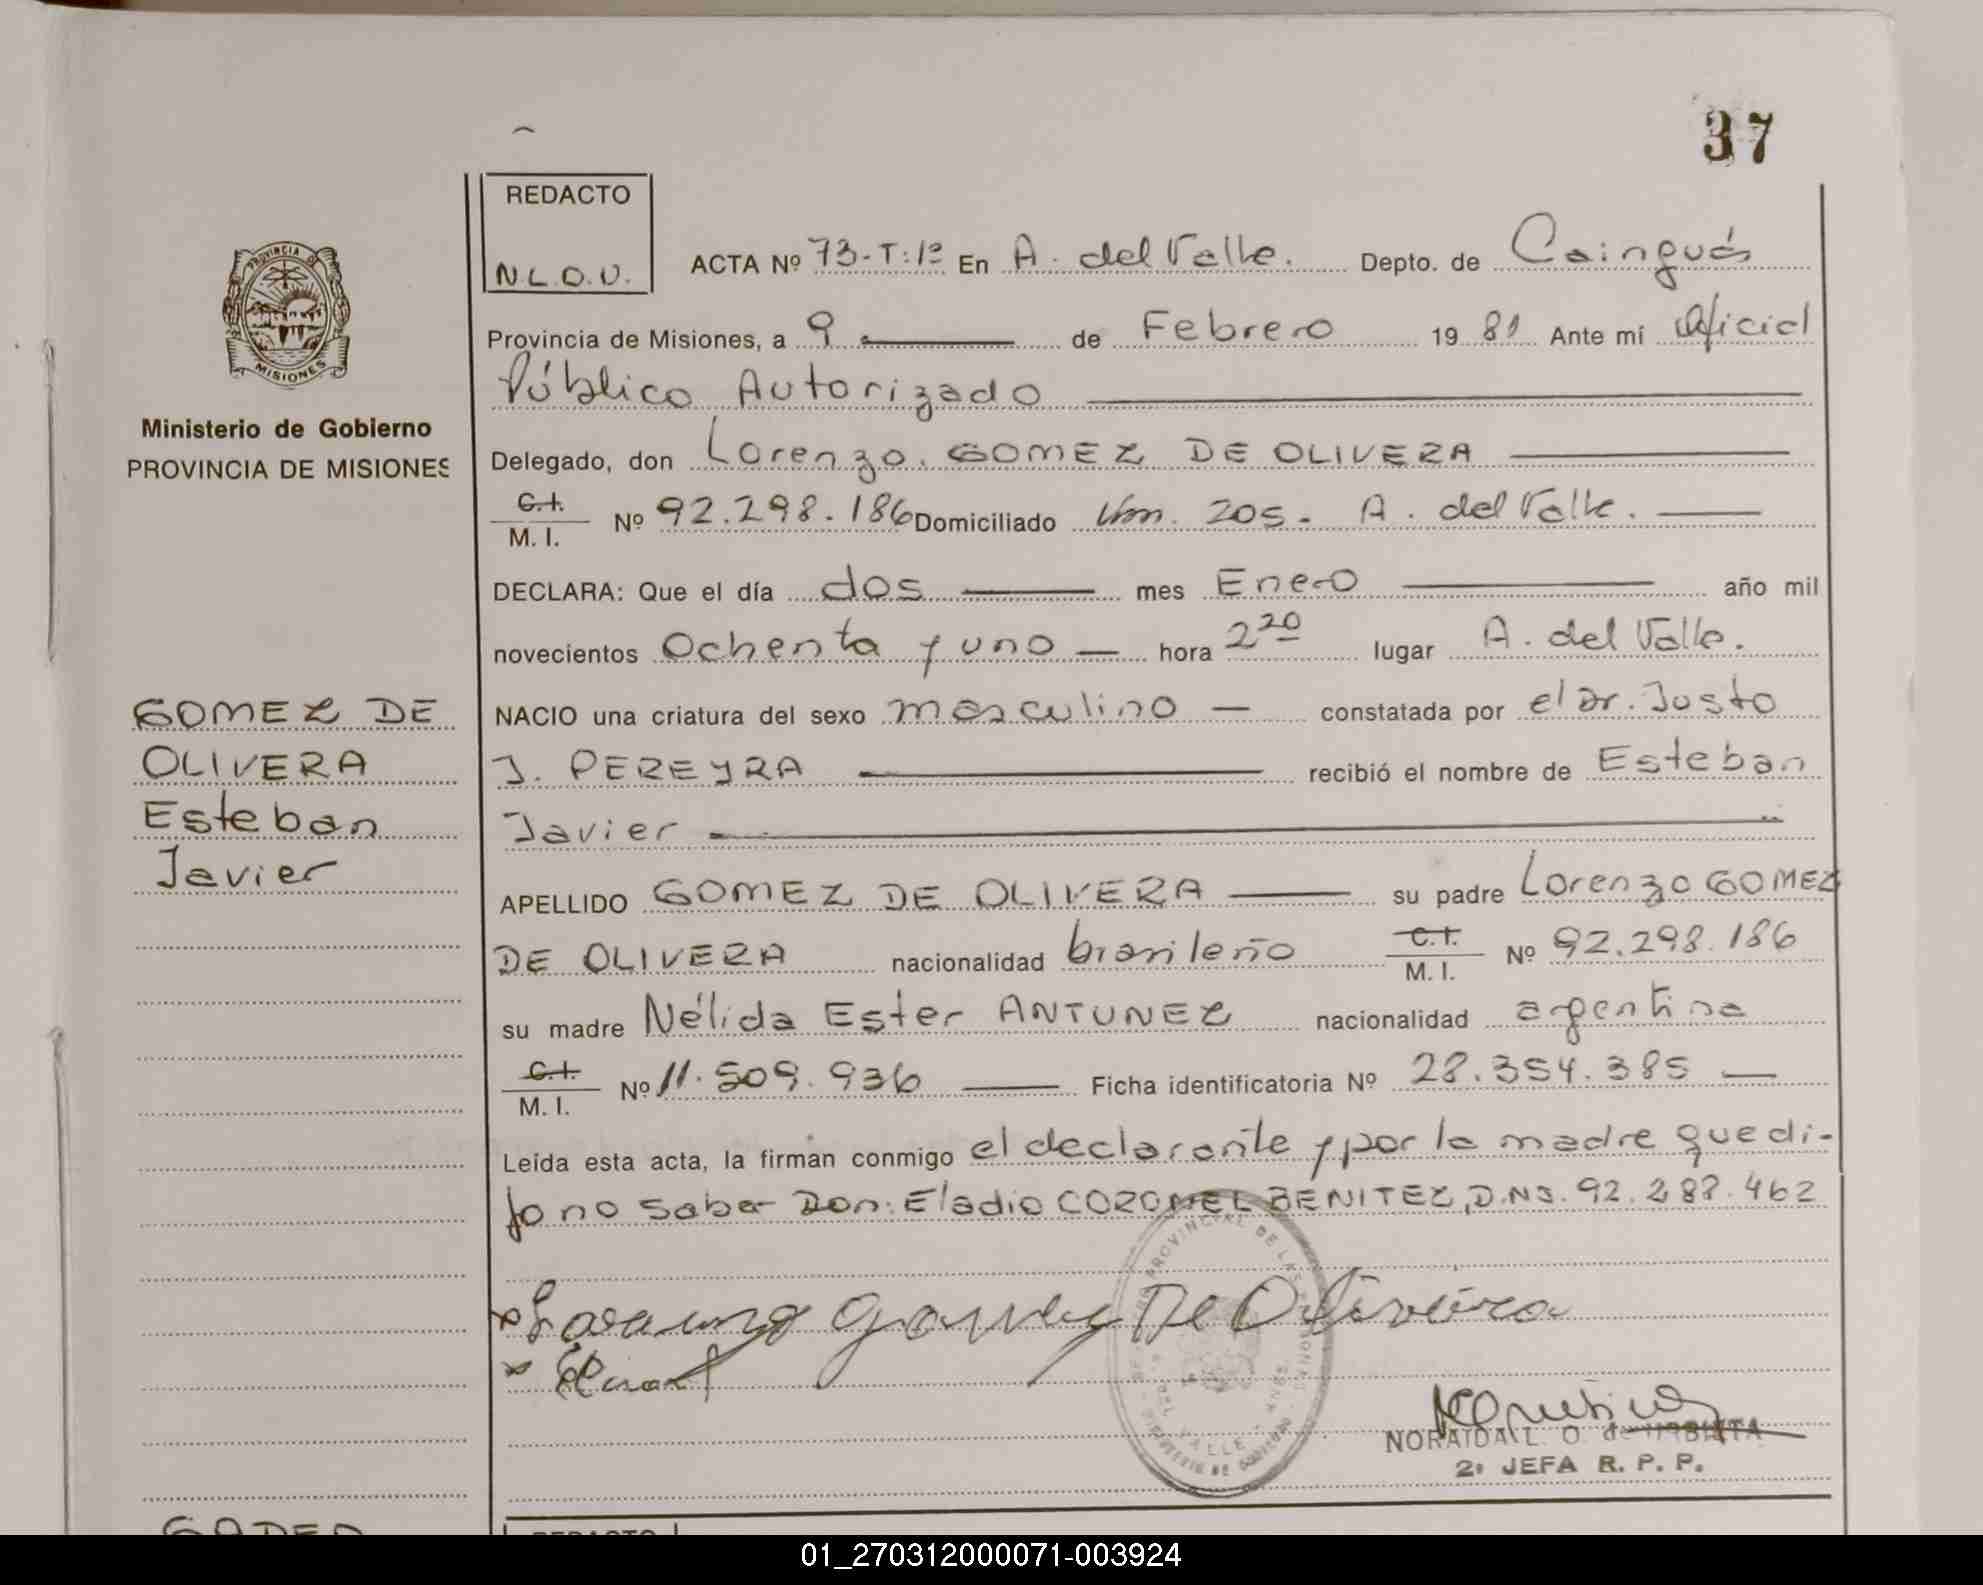 37
REDACTO
N.L.O.U.
ACTA Nº 73-T:1º En A. del Valle. Depto. de Cainguás
Provincia de Misiones, a 9 de Febrero 1981 Ante mí Oficial
Público Autorizado
PROVINCIA DE
MISIONES
Ministerio de Gobierno
PROVINCIA DE MISIONES
Delegado, don Lorenzo. GOMEZ DE OLIVERA
C.I.
M. I. Nº 92.298.186 Domiciliado Km. 205. A. del Valle.
DECLARA: Que el día dos mes Enero año mil
novecientos Ochenta y uno hora 2 20 lugar A. del Valle.
GOMEZ DE
OLIVERA
Esteban
Javier
NACIO una criatura del sexo masculino constatada por el Dr. Justo
J. PEREYRA recibió el nombre de Esteban
Javier
APELLIDO GOMEZ DE OLIVERA su padre Lorenzo GOMEZ
DE OLIVERA nacionalidad brasileño C.I. M. I. Nº 92.298.186
su madre Nélida Ester ANTUNEZ nacionalidad argentina
C.I.
M. I. Nº 11.509.936 Ficha identificatoria Nº 28.354.385
Leída esta acta, la firman conmigo el declarante y por la madre que di-
jo no saber Don: Eladio CORONEL BENITEZ, D.NI. 92.288.462
De Oliveira
NORAIDA L. O. de URBIETA
2ª JEFA R. P. P.
REDACTO
01_270312000071-003924